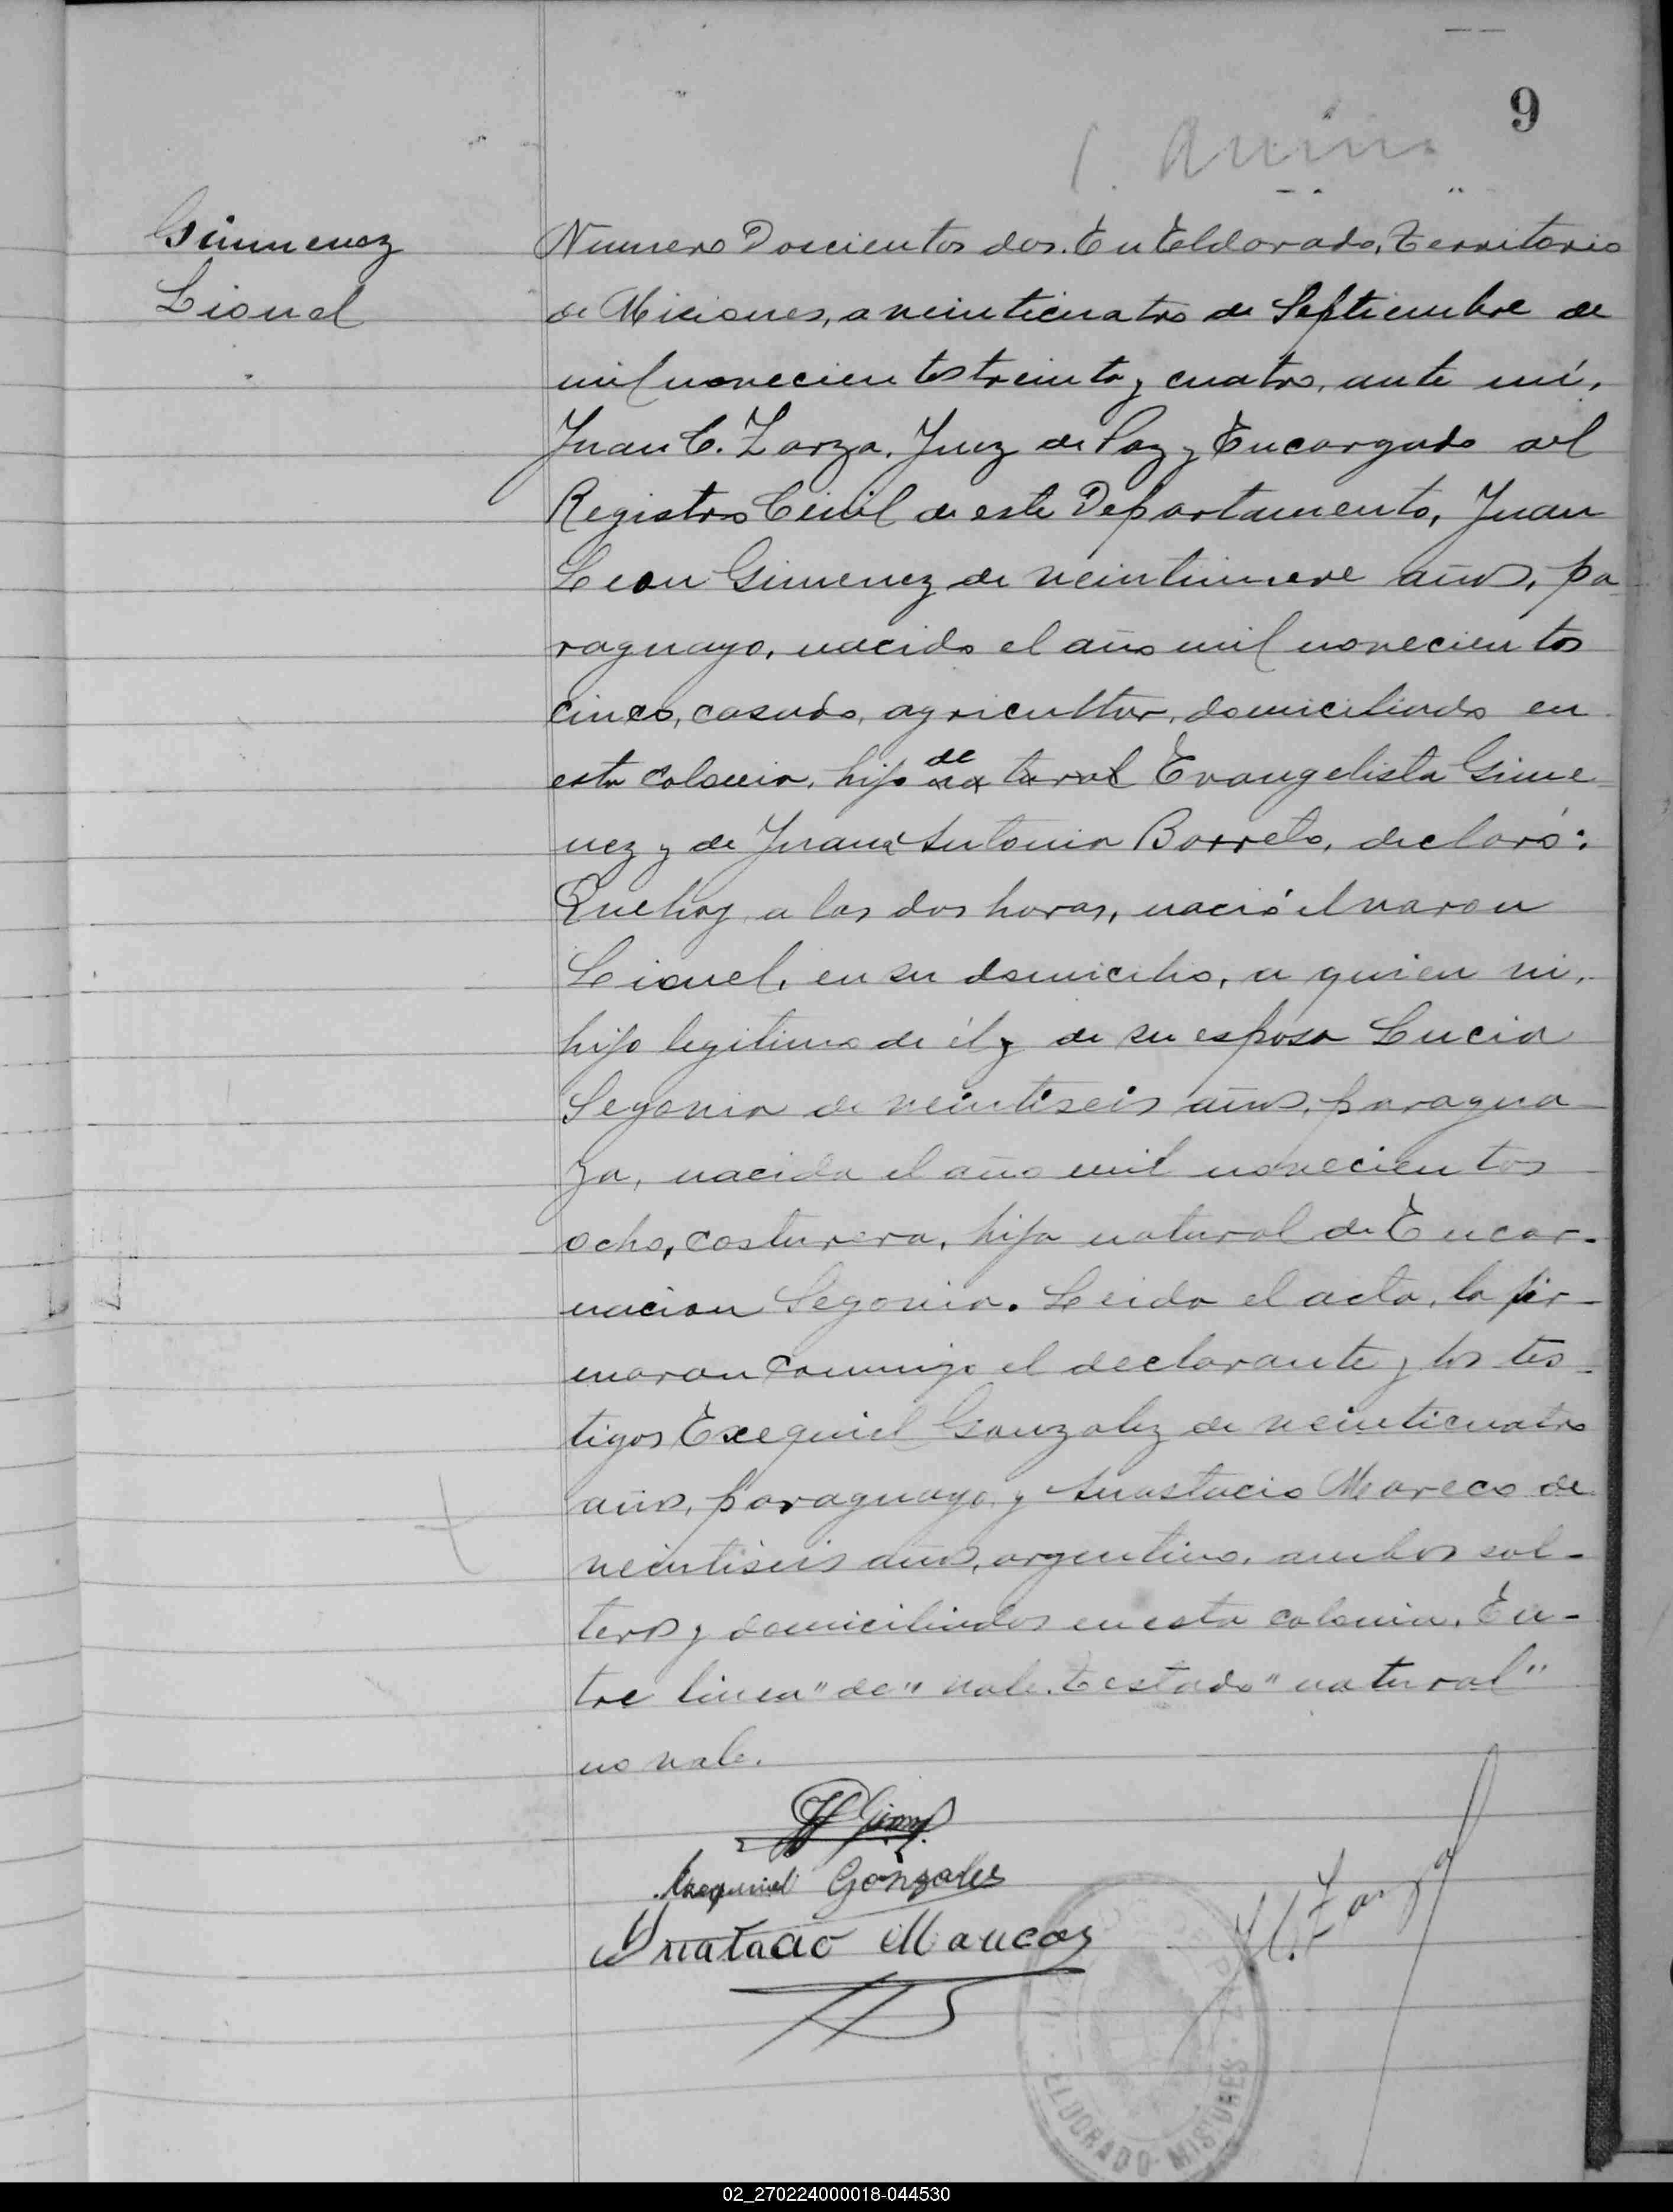 9
Gimenez
Lionel
Numero Doscientos dos. En Eldorado, Territorio
de Misiones, a veinticuatro de Septiembre de
mil novecientos treinta y cuatro, ante mí,
Juan C. Zarza, Juez de Paz y Encargado del
Registro Civil de este Departamento, Juan
Leon Gimenez de veintinueve años, pa-
raguayo, nacido el año mil novecientos
cinco, casado, agricultor, domiciliado en
esta colonia, hijo de natural Evangelista Gime-
nez y de Juana Antonia Barreto, declaró:
Que hoy a las dos horas, nació el varon
Lionel, en su domicilio, a quien vi,
hijo legitimo de él y de su esposa Lucia
Segovia de veintiseis años, paragua-
ya, nacida el año mil novecientos
ocho, costurera, hija natural de Encar-
nacion Segovia. Leida el acta, la fir-
maron conmigo el declarante y los tes-
tigos Exequiel Gonzalez de veinticuatro
años, paraguayo y Anastacio Mareco de
veintiseis años, argentino, ambos sol-
teros y domiciliados en esta colonia. En-
tre linea "de" vale. Testado "natural"
no vale.
Exequiel Gonzales
J.C. Zarza
ELDORADO - MISIONES
02_270224000018-044530